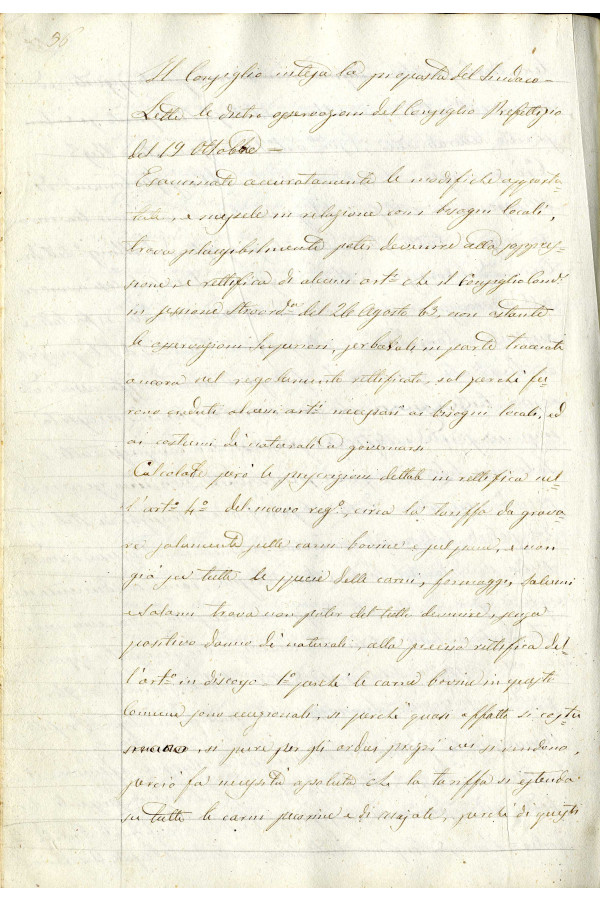 36
Il Consiglio intesa la proposta del Sindaco –
Lette le dietro osservazioni del Consiglio Prefettizio
del 19 Ottobre =
Esaminate accuratamente le modifiche apporta-
tate, e messele in relazione con i bisogni locali,
trova plausibilmente poter devenire alla soppres-
sione, e rettifica di alcuni arti. che il Consiglio Comle.
in sessione Straordia. del 26 Agosto 63, non ostante
le osservazioni Superiori, in parte tracciate
ancora nel regolamento rettificato, sol perchè fu-
rono creduti alcuni arti. necessari ai bisogni locali, ed
ai costumi de' naturali a governarsi
Calcolate però le prescrizioni dettate in rettifica nel-
l'arto. 4o. del nuovo rego., circa la tariffa da grava-
re solamente sulle carni bovine e sul pane, e non
già su tutte le specie delle carni, formaggi, salumi
e salami trova non poter del tutto devenire, senza
positivo danno de' naturali, alla precisa rettifica del-
l'arto. in discorso – 1o. perchè le carni bovine in questo
Comune sono eccezionali, sì perchè quasi affatto si costu
mano, sì pure per gli ardui prezzi cui si vendono,
perciò fa necessità assoluta che la tariffa si estenda
su tutte le carni pecorine e di majale, perchè di queste